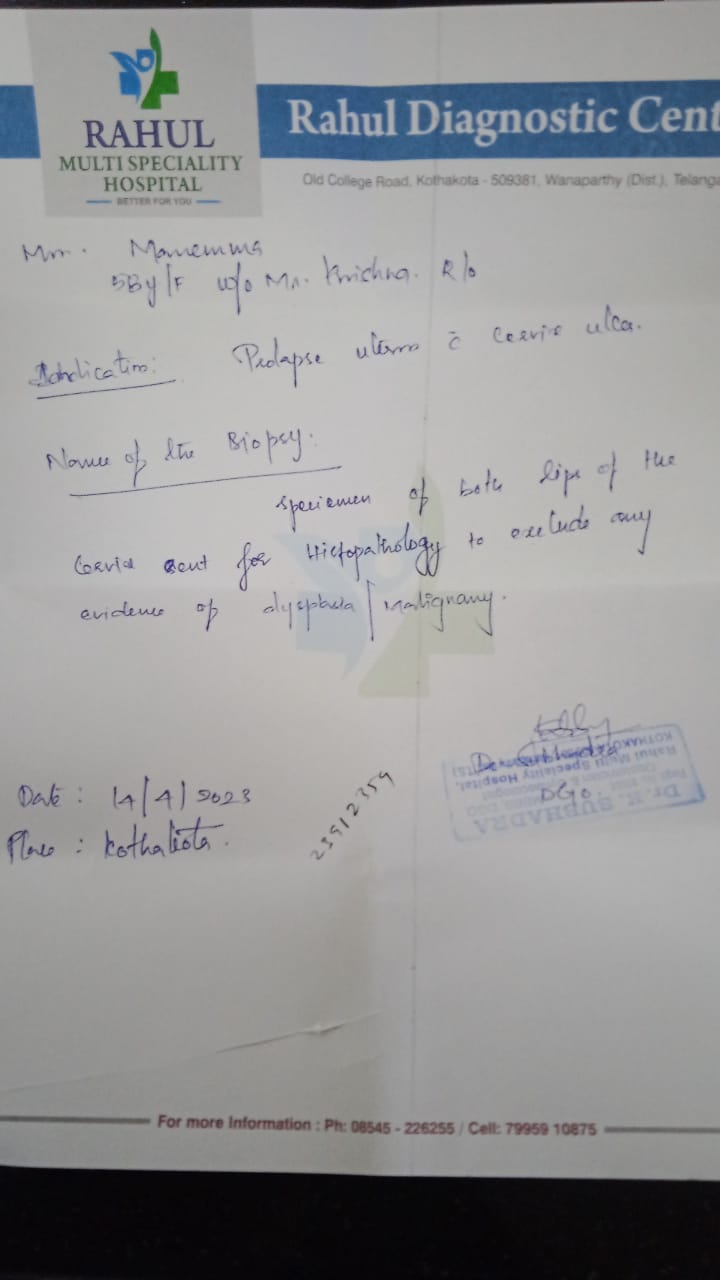 RAHUL
MULTI SPECIALITY
HOSPITAL
BETTER FOR YOU
Rahul Diagnostic Cent
Old College Road, Kothakota - 509381, Wanaparthy (Dist.), Telanga
Mrs. Manemma
W/o Mr. Krishna. R/o
Prolapse uterus c̄ Cervix ulcer.
Name of the Biopsy:
Speciemen of both lips of the
Cervix sent for Histopathology to exclude any
evidence of dysplasia / Malignany.
Dr. K. SUBHADRA
Rahul Multi Speciality Hospital,
DGO.
Date : 14/4/2023
Place : Kothakota.
23912359
For more Information : Ph: 08545 - 226255 / Cell: 79959 10875